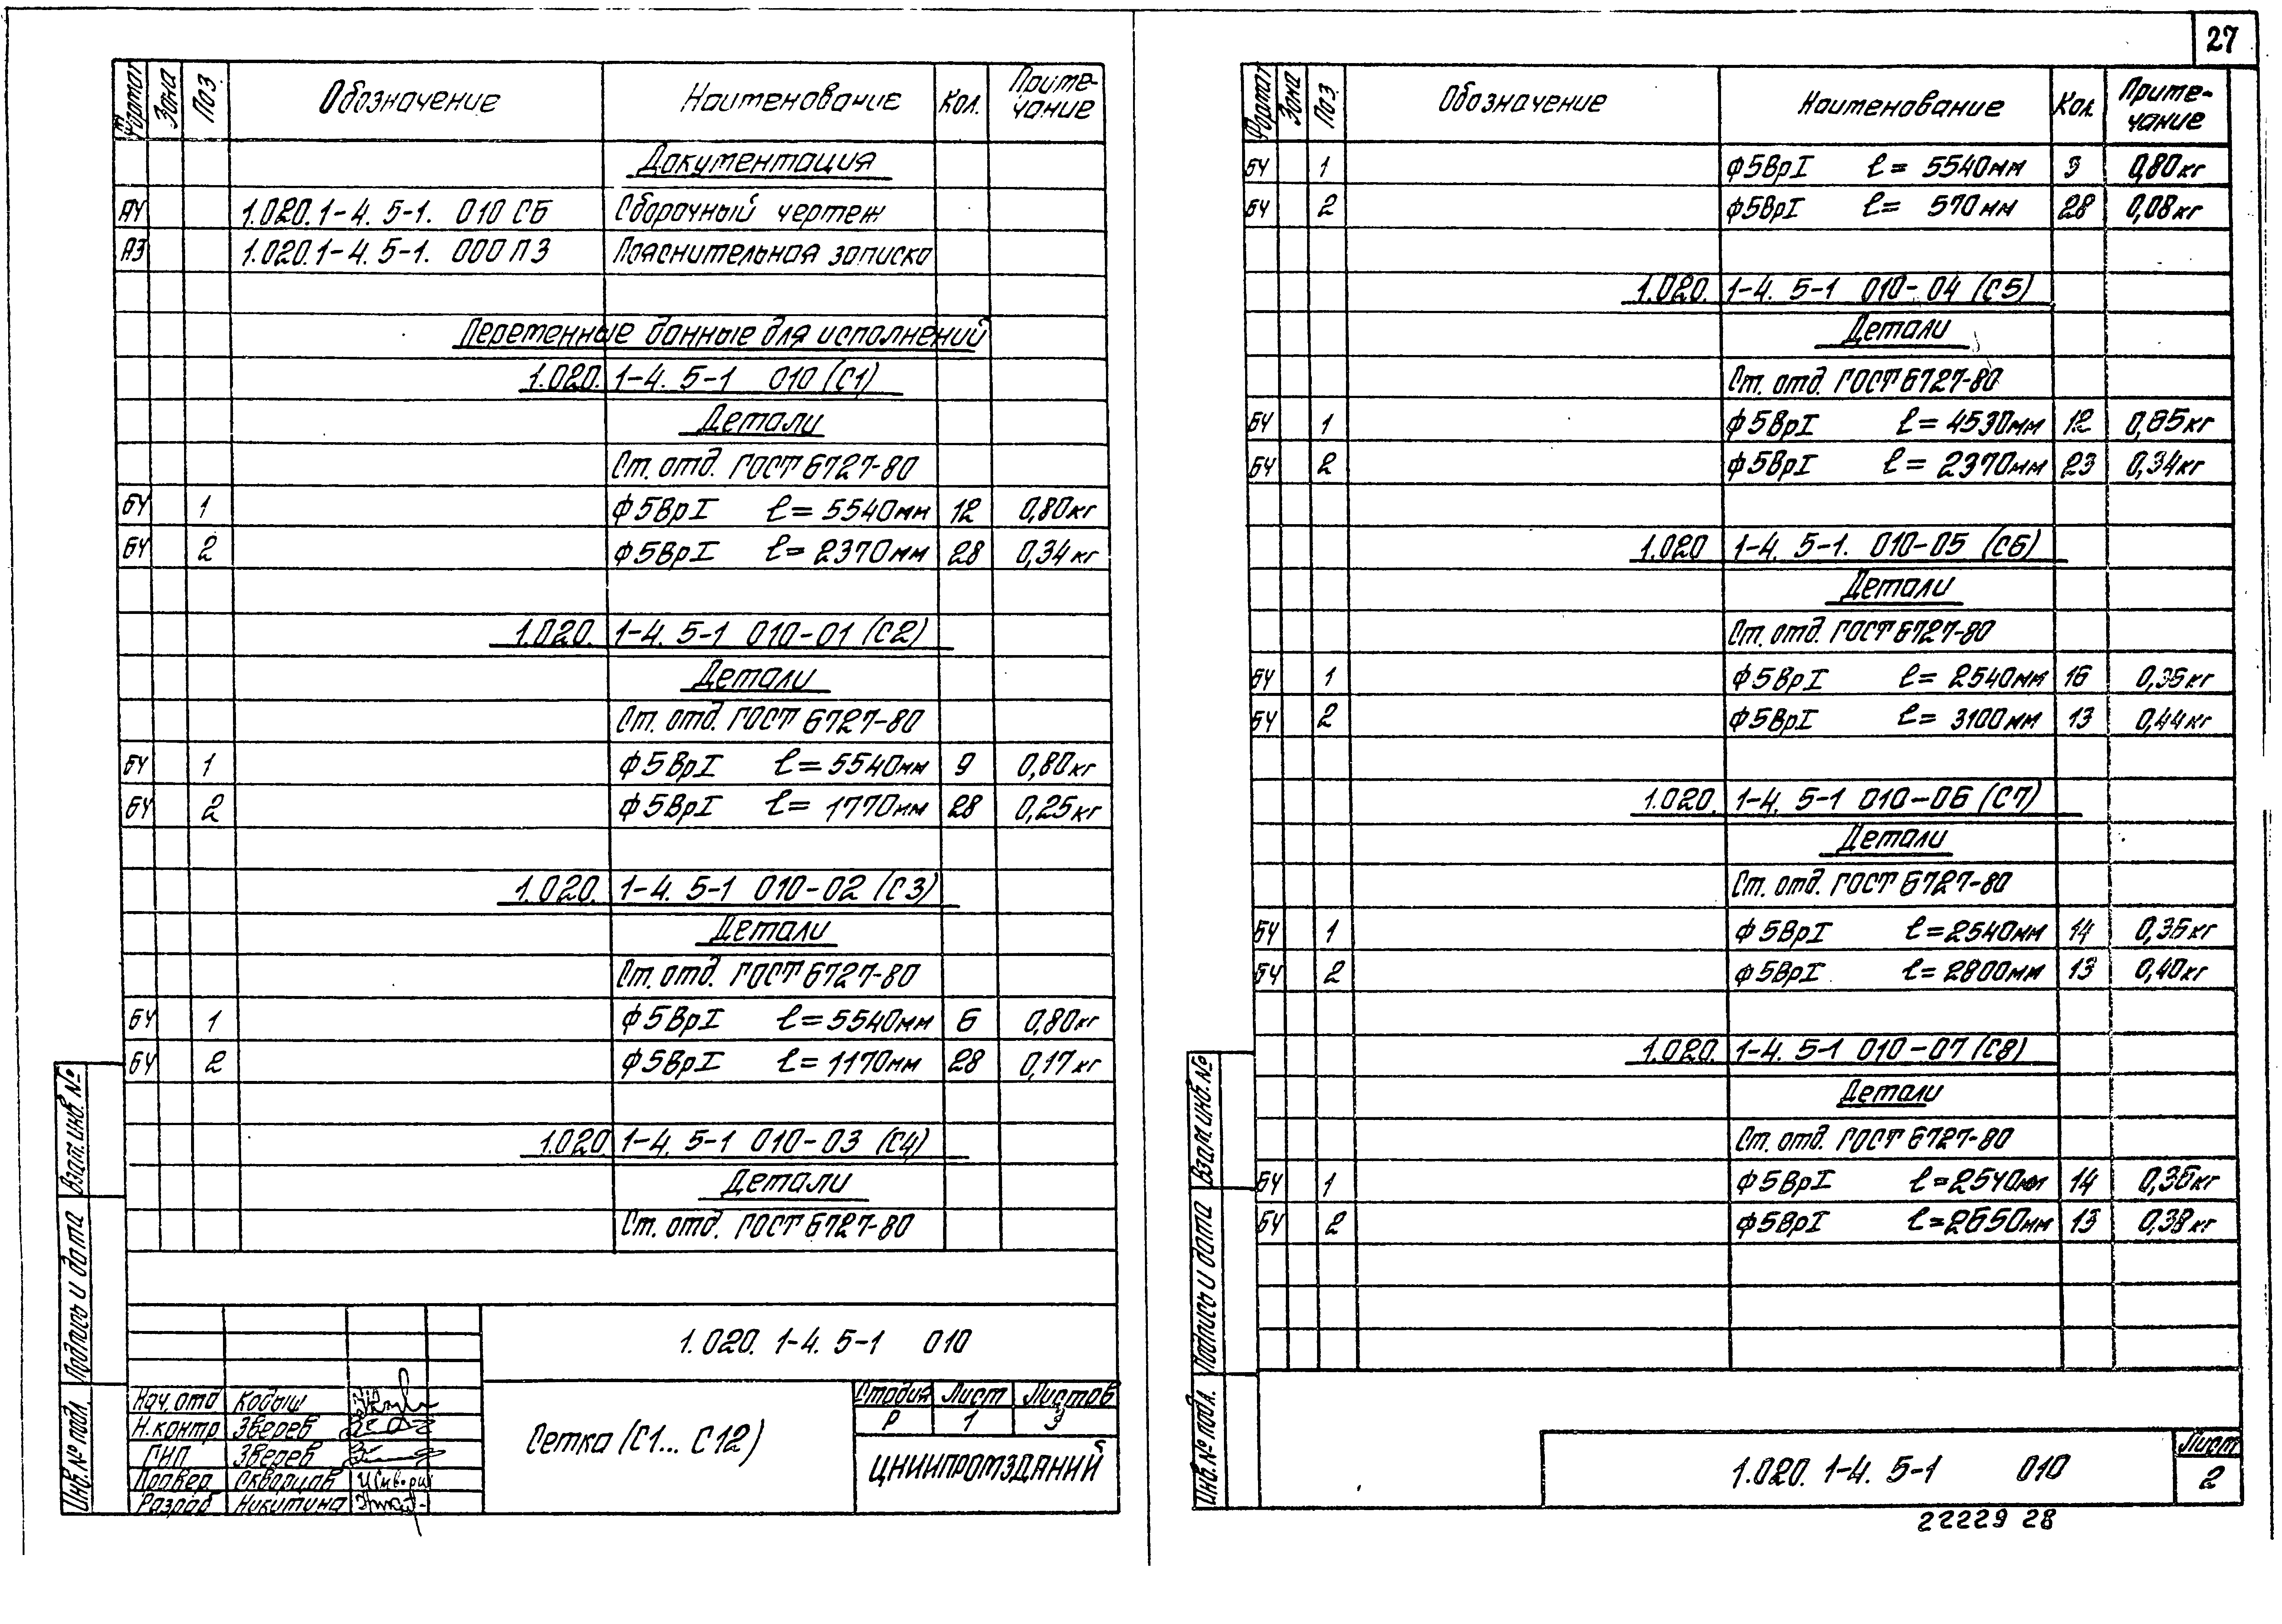 27
Формат Зона Поз. Обозначение Наименование Кол. Приме-чание
Документация
А4 1.020.1-4. 5-1. 010 СБ Сборочный чертеж
А3 1.020.1-4. 5-1. 000 ПЗ Пояснительная записка
Переменные данные для исполнений
1.020. 1-4. 5-1 010 (С1)
Детали
Ст. отд. ГОСТ 6727-80
БЧ 1 ф5ВрI ℓ=5540мм 12 0,80кг
БЧ 2 ф5ВрI ℓ=2370мм 28 0,34кг
1.020. 1-4. 5-1 010-01 (С2)
Детали
Ст. отд. ГОСТ 6727-80
БЧ 1 ф5ВрI ℓ=5540мм 9 0,80кг
БЧ 2 ф5ВрI ℓ=1770мм 28 0,25кг
1.020. 1-4. 5-1 010-02 (С3)
Детали
Ст. отд. ГОСТ 6727-80
БЧ 1 ф5ВрI ℓ=5540мм 6 0,80кг
БЧ 2 ф5ВрI ℓ=1170мм 28 0,17кг
1.020. 1-4. 5-1 010-03 (С4)
Детали
Ст. отд. ГОСТ 6727-80
1.020. 1-4. 5-1 010
Нач. отд Кодыш
Н. контр Зверев
ГИП Зверев
Провер.
Разраб Никитина
Сетка (С1... С12)
Стадия Лист Листов
Р 1 3
ЦНИИПРОМЗДАНИЙ
Взам. инв. №
Подпись и дата
Инв. № подл.
Формат Зона Поз. Обозначение Наименование Кол. Приме-чание
БЧ 1 ф5ВрI ℓ= 5540мм 3 0,80кг
БЧ 2 ф5ВрI ℓ= 570мм 28 0,08кг
1.020. 1-4. 5-1 010-04 (С5)
Детали
Ст. отд. ГОСТ 6727-80
БЧ 1 ф5ВрI ℓ=4530мм 12 0,65кг
БЧ 2 ф5ВрI ℓ= 2370мм 23 0,34кг
1.020 1-4. 5-1. 010-05 (С6)
Детали
Ст. отд. ГОСТ 6727-80
БЧ 1 ф5ВрI ℓ= 2540мм 16 0,36кг
БЧ 2 ф5ВрI ℓ= 3100мм 13 0,44кг
1.020. 1-4. 5-1 010-06 (С7)
Детали
Ст. отд. ГОСТ 6727-80
БЧ 1 ф5ВрI ℓ=2540мм 14 0,36кг
БЧ 2 ф5ВрI ℓ=2800мм 13 0,40кг
1.020. 1-4. 5-1 010-07 (С8)
Детали
Ст. отд. ГОСТ 6727-80
БЧ 1 ф5ВрI ℓ=2540мм 14 0,36кг
БЧ 2 ф5ВрI ℓ=2650мм 13 0,38кг
Взам. инв. №
Подпись и дата
Инв. № подл.
1.020. 1-4. 5-1 010
Лист
2
22229 28